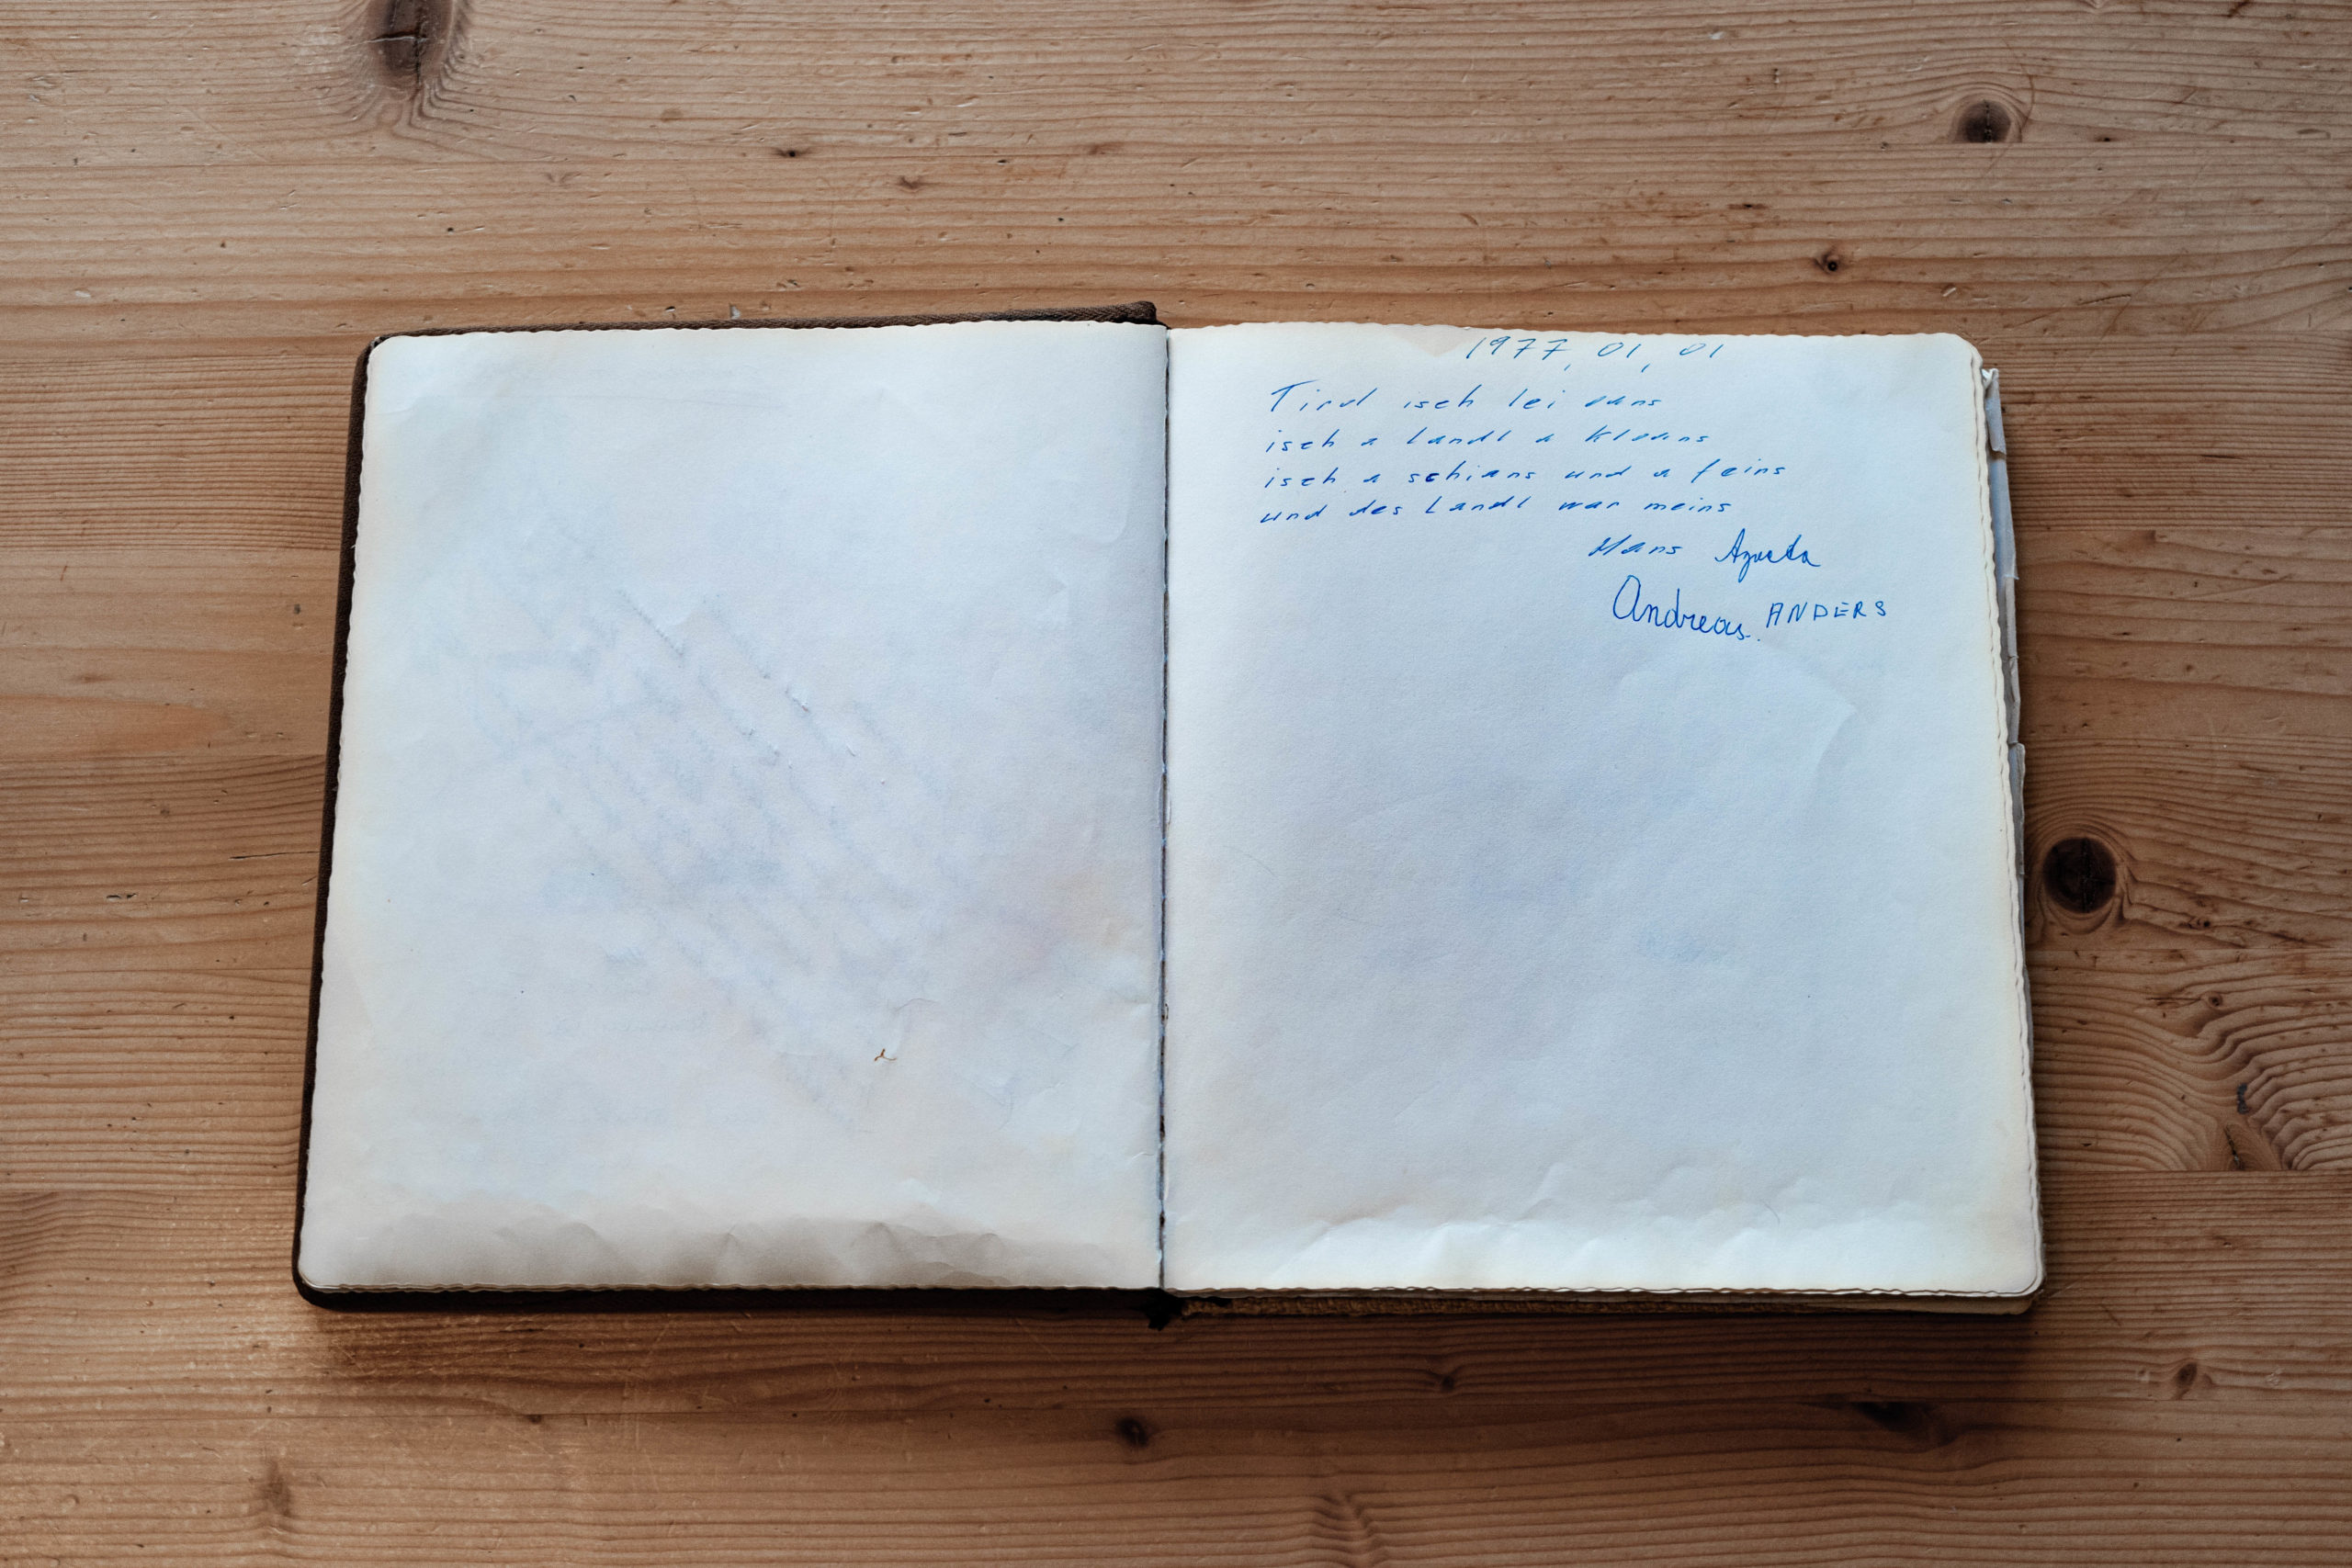 1977, 01, 01
Tirol isch lei oans
isch a landl a kloans
isch a schians und a feins
und des Landl war meins
Hans
Andreas. ANDERS